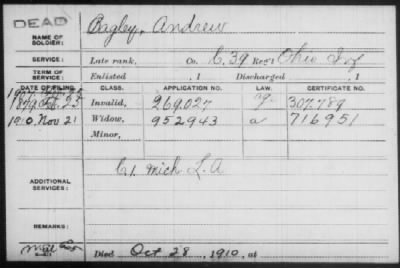 DEAD
NAME OF SOLDIER: Bagley, Andrew
SERVICE: Late rank, Co. C, 39 Reg't Ohio Inf
TERM OF SERVICE: Enlisted , 1 Discharged , 1
DATE OF FILING. CLASS. APPLICATION NO. LAW. CERTIFICATE NO.
1879 Invalid, 269,027 307,789
1910, Nov 21 Widow, 952943 a 716951
Minor,
ADDITIONAL SERVICES: C 1 Mich L. A
REMARKS:
Died Oct 28, 1910, at